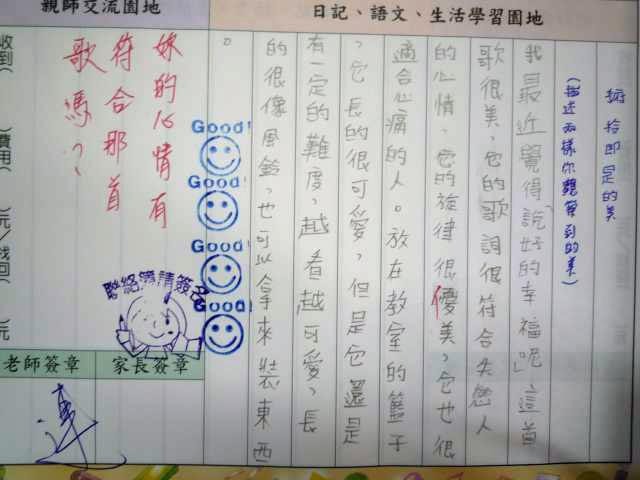 日記、語文、生活學習園地
俯拾即是的美
(描述兩樣你觀察到的美)
我最近覺得「說好的幸福呢」這首
歌很美,它的歌詞很符合失戀人
的心情,它的旋律很優美,它也很
適合心痛的人。放在教室的籃子
,它長的很可愛,但是它還是
有一定的難度,越看越可愛,長
的很像風鈴,也可以拿來裝東西
。
Good!
Good!
Good!
Good!
親師交流園地
妳的心情有
符合那首
歌嗎?
聯絡簿請簽名
家長簽章
老師簽章
收到(
)費用(
)元/找回(
)元